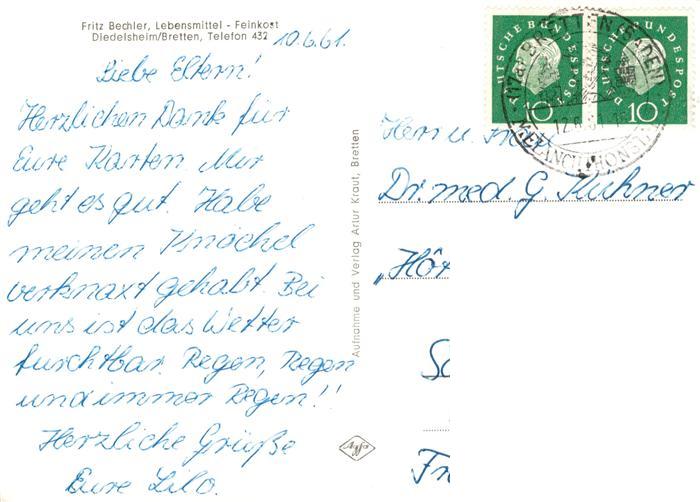 Fritz Bechler, Lebensmittel - Feinkost
Diedelsheim/Bretten, Telefon 432
10.6.61.
Liebe Eltern!
Herzlichen Dank für
Eure Karten. Mir
geht es gut. Habe
meinen Knöchel
verknaxt gehabt. Bei
uns ist das Wetter
furchtbar. Regen, Regen
und immer Regen!!
Herzliche Grüße
Eure Lilo.
Aufnahme und Verlag Artur Kraut, Bretten
Agfa
DEUTSCHE BUNDESPOST
10
DEUTSCHE BUNDESPOST
10
(17a) BRETTEN (BADEN)
MELANCHTHONST
Herrn u. Frau
Dr. med G.
„Hör
Sc